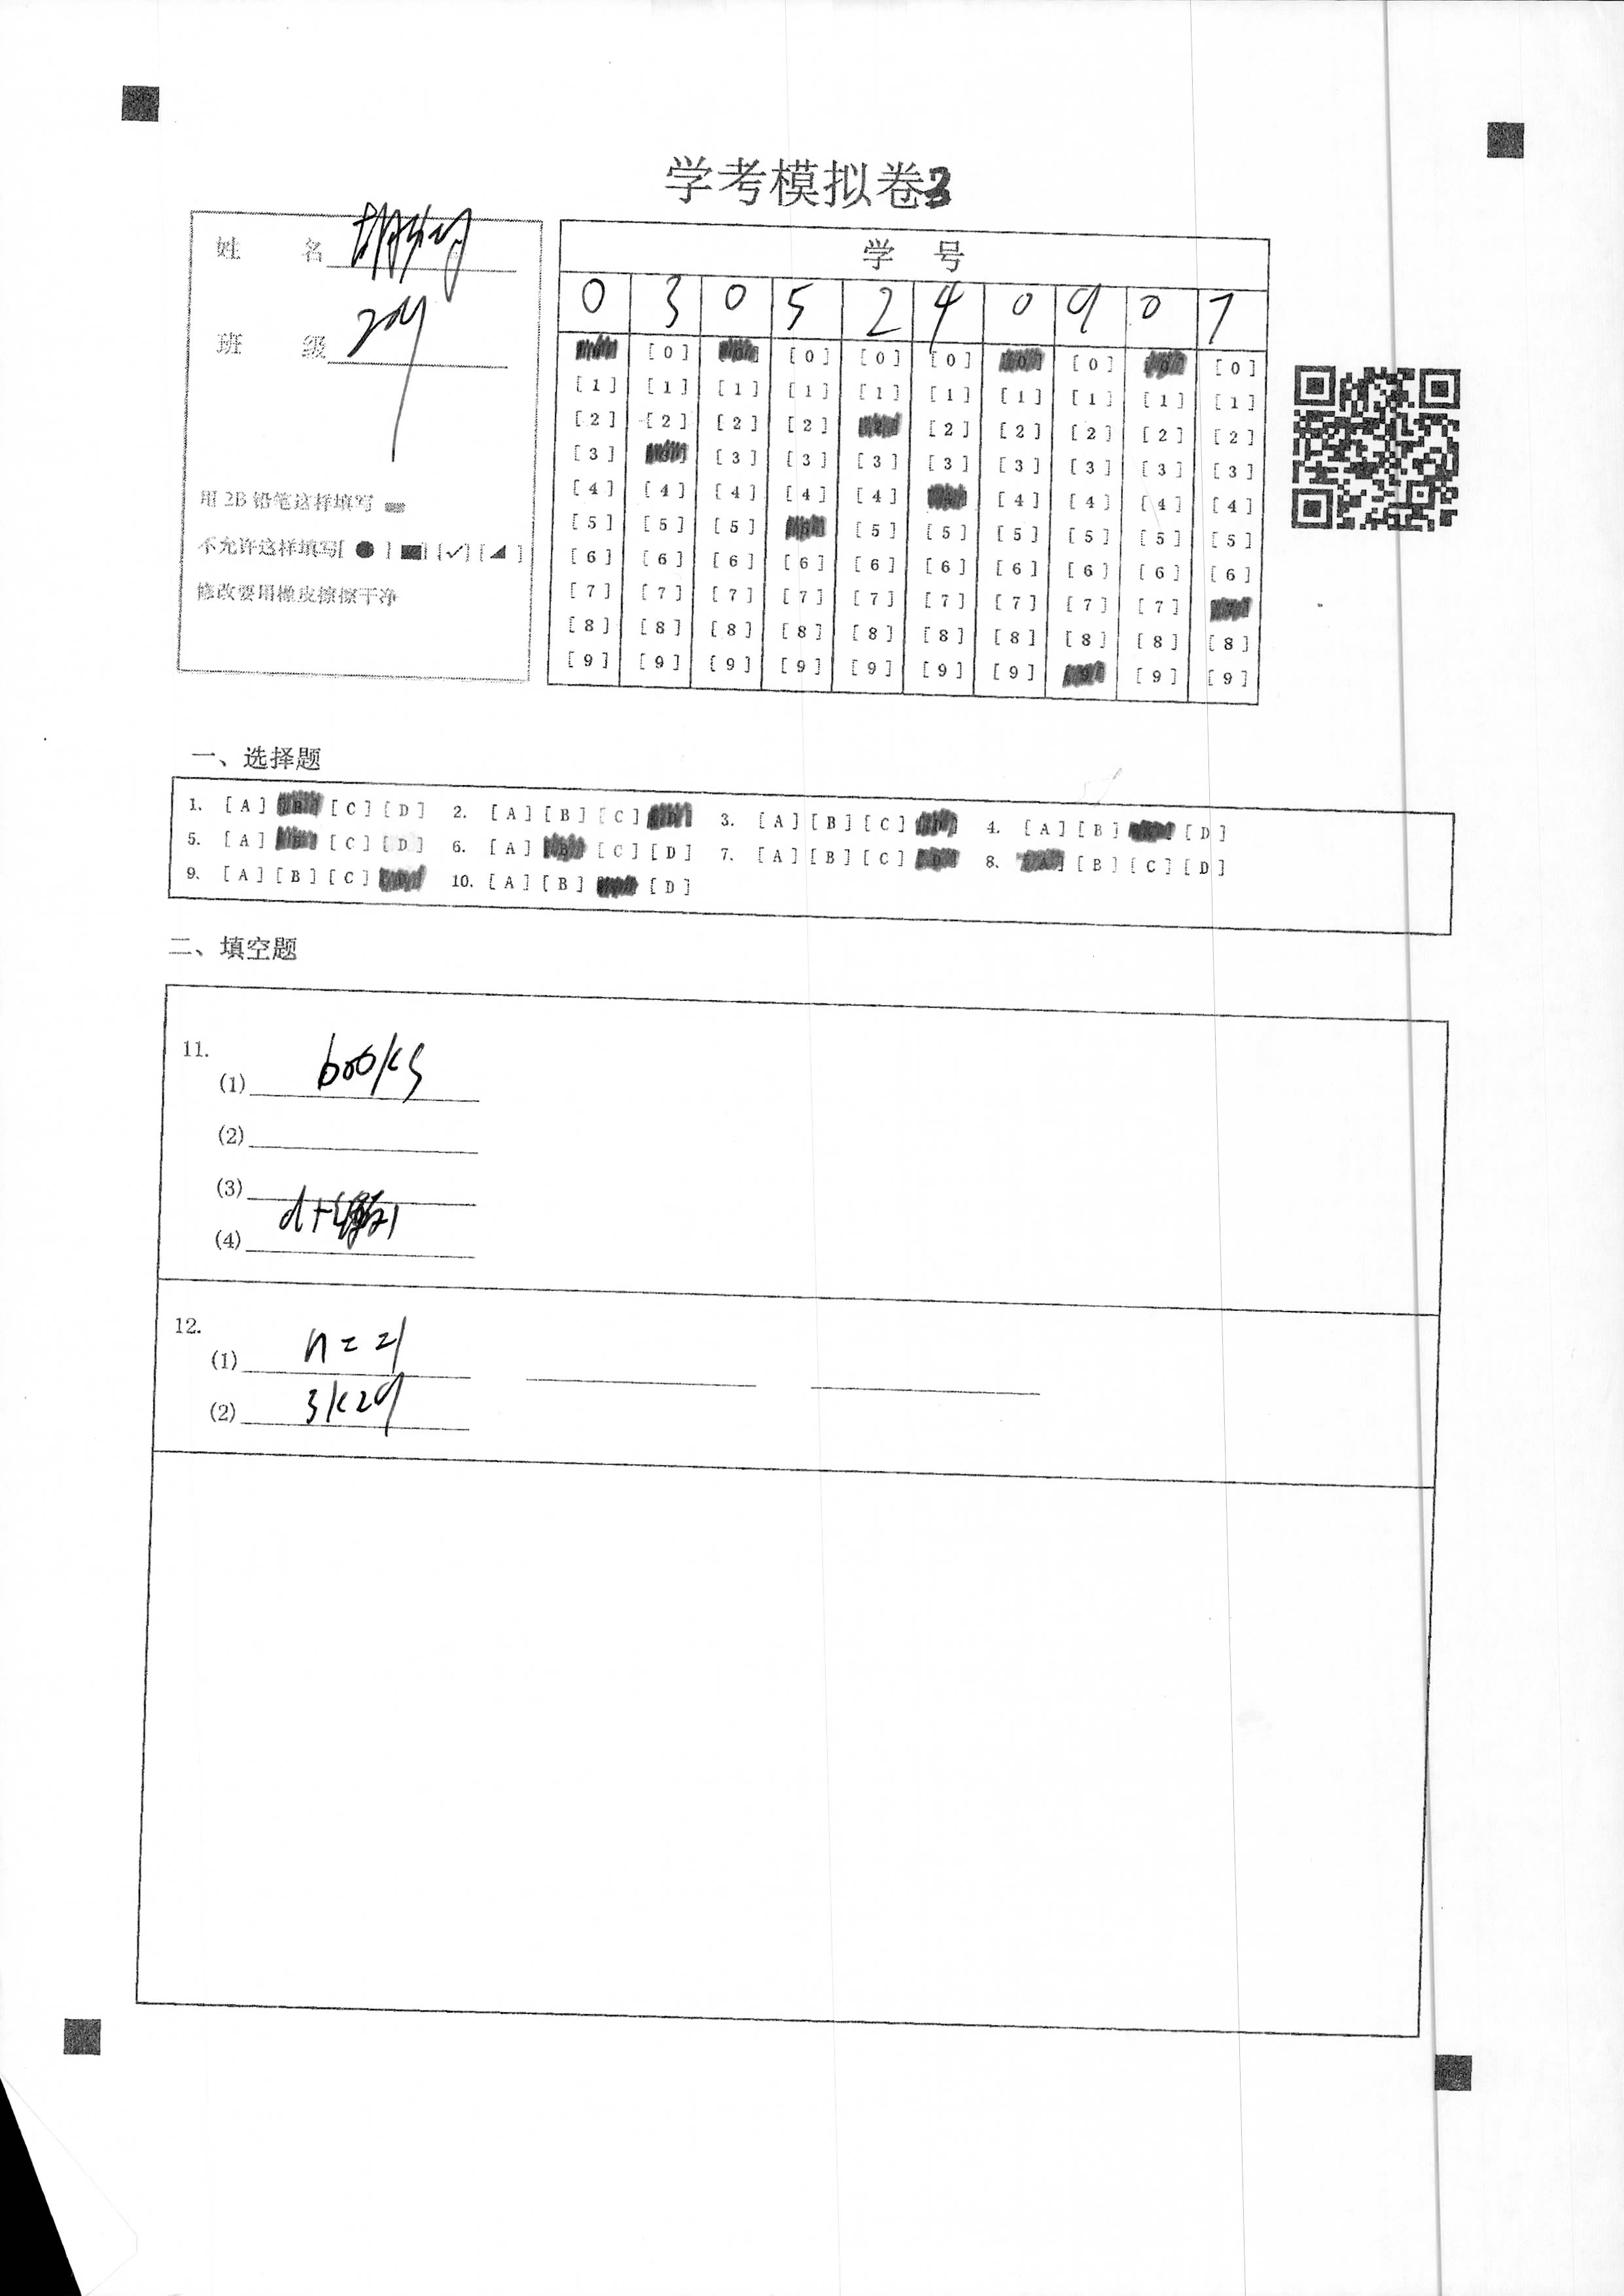 学考模拟卷3
姓 名
班 级 209
用 2B 铅笔这样填写
不允许这样填写[ ● ] [■] [✓] [◢ ]
修改要用橡皮擦擦干净
学 号
0 3 0 5 2 4 0 9 0 7
[0] [0] [0] [0] [0] [0]
[1] [1] [1] [1] [1] [1] [1] [1] [1] [1]
[2] [2] [2] [2] [2] [2] [2] [2] [2]
[3] [3] [3] [3] [3] [3] [3] [3] [3]
[4] [4] [4] [4] [4] [4] [4] [4] [4]
[5] [5] [5] [5] [5] [5] [5] [5] [5]
[6] [6] [6] [6] [6] [6] [6] [6] [6] [6]
[7] [7] [7] [7] [7] [7] [7] [7] [7]
[8] [8] [8] [8] [8] [8] [8] [8] [8] [8]
[9] [9] [9] [9] [9] [9] [9] [9] [9]
一、选择题
1. [A] [B] [C] [D] 2. [A] [B] [C] [D] 3. [A] [B] [C] [D] 4. [A] [B] [D]
5. [A] [B] [C] [D] 6. [A] [B] [C] [D] 7. [A] [B] [C] [D] 8. [A] [B] [C] [D]
9. [A] [B] [C] [D] 10. [A] [B] [D]
二、填空题
11.
(1) books
(2)
(3)
(4)
12.
(1)
(2)